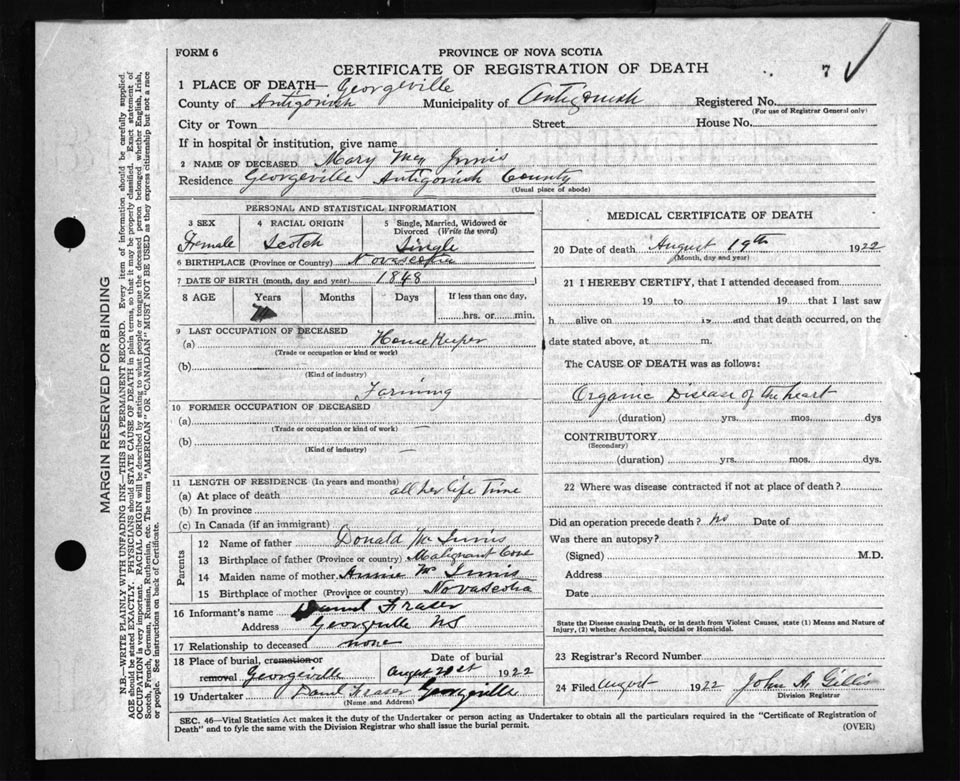 FORM 6
PROVINCE OF NOVA SCOTIA
CERTIFICATE OF REGISTRATION OF DEATH
7 ✓
1 PLACE OF DEATH— Georgeville
County of Antigonish Municipality of Antigonish Registered No.
(For use of Registrar General only)
City or Town Street House No.
If in hospital or institution, give name
2 NAME OF DECEASED Mary Mc Innis
Residence Georgeville Antigonish County
(Usual place of abode)
PERSONAL AND STATISTICAL INFORMATION
3 SEX Female
4 RACIAL ORIGIN Scotch
5 Single, Married, Widowed or Divorced (Write the word) Single
6 BIRTHPLACE (Province or Country) Novascotia
7 DATE OF BIRTH (month, day and year) 1848
8 AGE Years Months Days If less than one day,
74 hrs. or min.
9 LAST OCCUPATION OF DECEASED
(a) House Keeper
(Trade or occupation or kind or work)
(b)
(Kind of industry)
Farming
10 FORMER OCCUPATION OF DECEASED
(a)
(Trade or occupation or kind of work) —
(b)
(Kind of industry) —
11 LENGTH OF RESIDENCE (In years and months)
(a) At place of death all her life time
(b) In province
(c) In Canada (if an immigrant)
Parents
12 Name of father Donald Mc Innis
13 Birthplace of father (Province or country) Malignant Cove
14 Maiden name of mother Annie Mc Innis
15 Birthplace of mother (Province or country) Novascotia
16 Informant's name Daniel Fraser
Address Georgeville NS
17 Relationship to deceased none
18 Place of burial, cremation or removal Georgeville
Date of burial August 21st 1922
19 Undertaker Daniel Fraser Georgeville
(Name and Address)
MEDICAL CERTIFICATE OF DEATH
20 Date of death August 19th 1922
(Month, day and year)
21 I HEREBY CERTIFY, that I attended deceased from
19 to 19 that I last saw
h alive on 19 and that death occurred, on the
date stated above, at m.
The CAUSE OF DEATH was as follows:
Organic Disease of the heart
(duration) yrs. mos. dys
CONTRIBUTORY
(Secondary)
(duration) yrs. mos. dys.
22 Where was disease contracted if not at place of death?
Did an operation precede death? no Date of
Was there an autopsy?
(Signed) M.D.
Address
Date
State the Disease causing Death, or in death from Violent Causes, state (1) Means and Nature of
Injury, (2) whether Accidental, Suicidal or Homicidal.
23 Registrar's Record Number
24 Filed August 1922 John A. Gillis
Division Registrar
SEC. 46—Vital Statistics Act makes it the duty of the Undertaker or person acting as Undertaker to obtain all the particulars required in the "Certificate of Registration of
Death" and to fyle the same with the Division Registrar who shall issue the burial permit. (OVER)
MARGIN RESERVED FOR BINDING
N.B.—WRITE PLAINLY WITH UNFADING INK—THIS IS A PERMANENT RECORD. Every item of information should be carefully supplied.
AGE should be stated EXACTLY. PHYSICIANS should STATE CAUSE OF DEATH in plain terms, so that it may be properly classified. Exact statement of
OCCUPATION is very important. RACIAL ORIGIN will be described by stating to what people or tongue the deceased person belonged whether English, Irish,
Scotch, French, German, Russian, Ruthenian, etc. The terms "AMERICAN" OR "CANADIAN" MUST NOT BE USED as they express citizenship but not a race
or people. See instructions on back of Certificate.